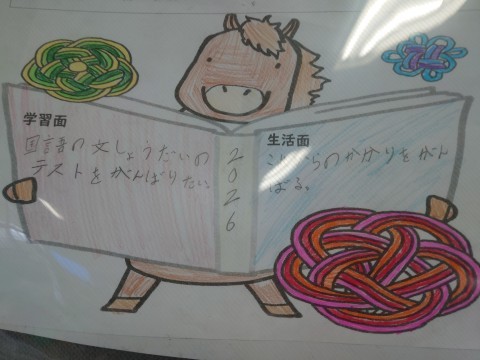 学習面
国語の文しょうだいの
テストをがんばりたい。
2026
生活面
これからのかかりをがん
ばる。